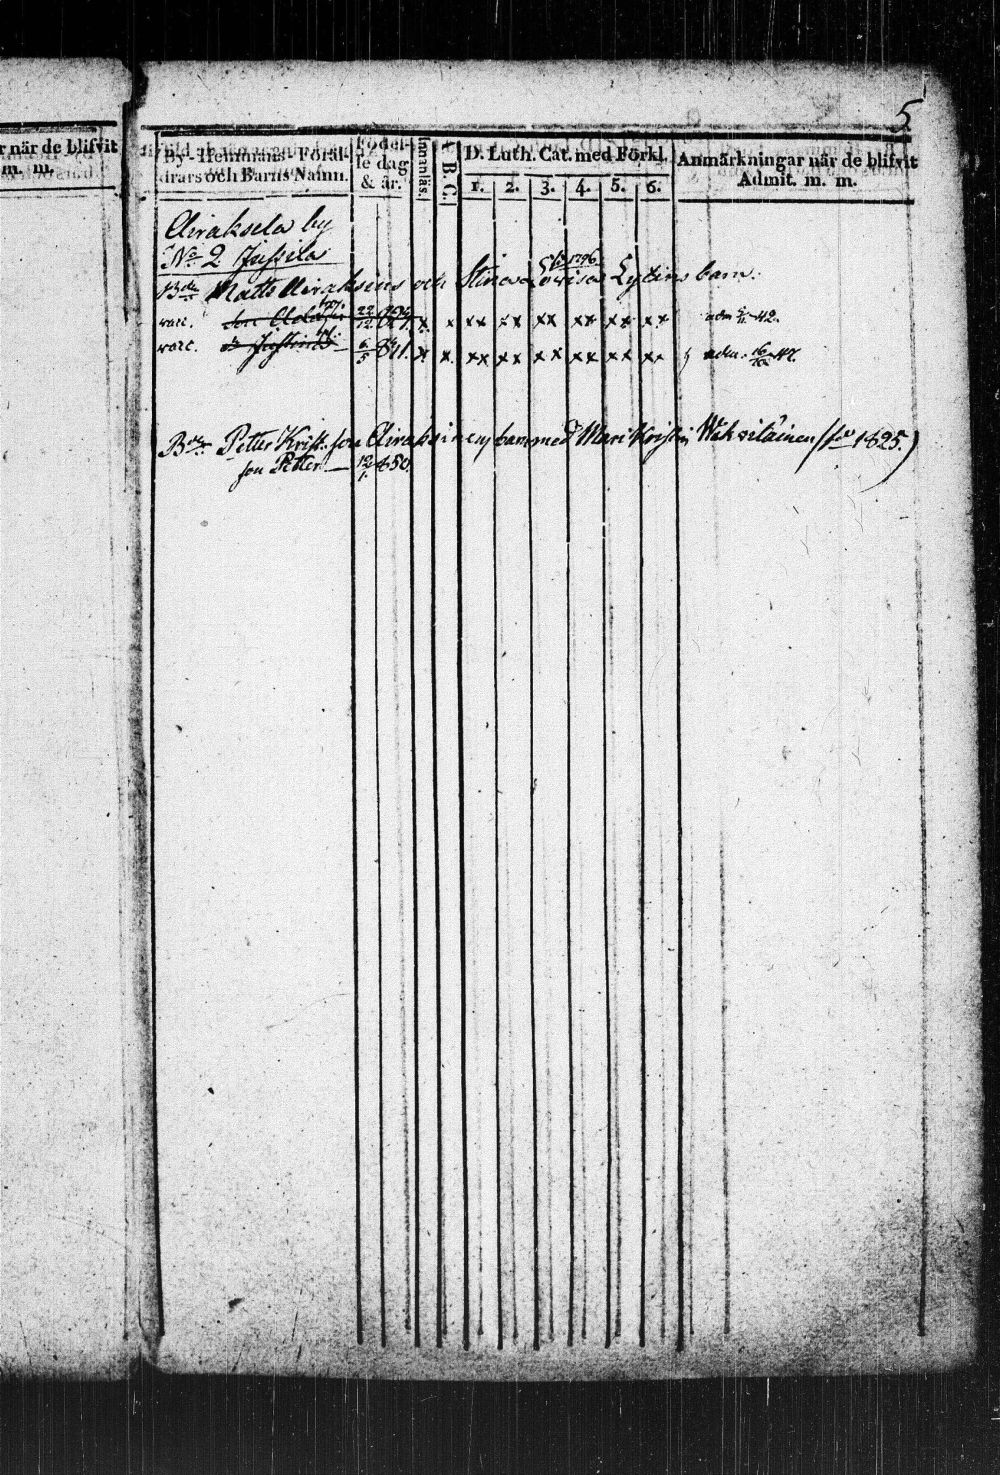 5
r när de blifvit
m. m.
By- Hemmans- Föräl-
drars och Barns Namn.
Födel-
se dag
& år.
Innanläs.
A B C.
D. Luth. Cat. med Förkl.
1. 2. 3. 4. 5. 6.
Anmärkningar när de blifvit
Admit. m. m.
Airaksela by
No 2 Jussila
1796
Matts Airaksins och Stina Lovisa Lytins barn.
vacc. 22/12 827. x x xx xx xx xx xx xx adm 42.
vacc. Justina 6/5 811. x x xx xx xx xx xx xx adm. 16/10 47.
Petter Krist. son Airaksinens barn med Mari Kristin (född 1825.)
son Petter 12/1. 850.